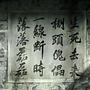 生死去來
棚頭傀儡
一線斷時
落落磊磊